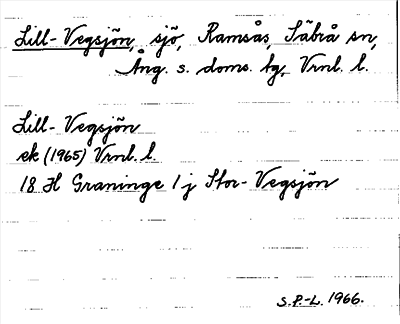 Lill-Vegsjön, sjö, Ramsås, Säbrå sn,
Ång. s. doms. tg, Vrnl. l.
Lill-Vegsjön
ek (1965) Vrnl. l.
18 H Graninge 1 j Stor-Vegsjön
S.P.-L. 1966.